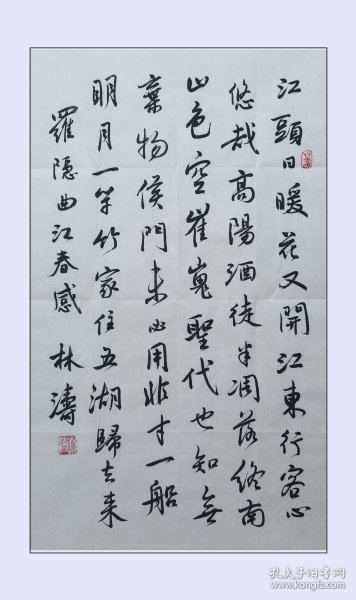 江頭日暖花又開江東行客心
悠哉高陽酒徒半凋落終南
山色空崔嵬聖代也知無
棄物侯門未必用非才一船
明月一竿竹家住五湖歸去來
羅隱曲江春感 林濤
孔夫子旧书网
www.kongfz.com